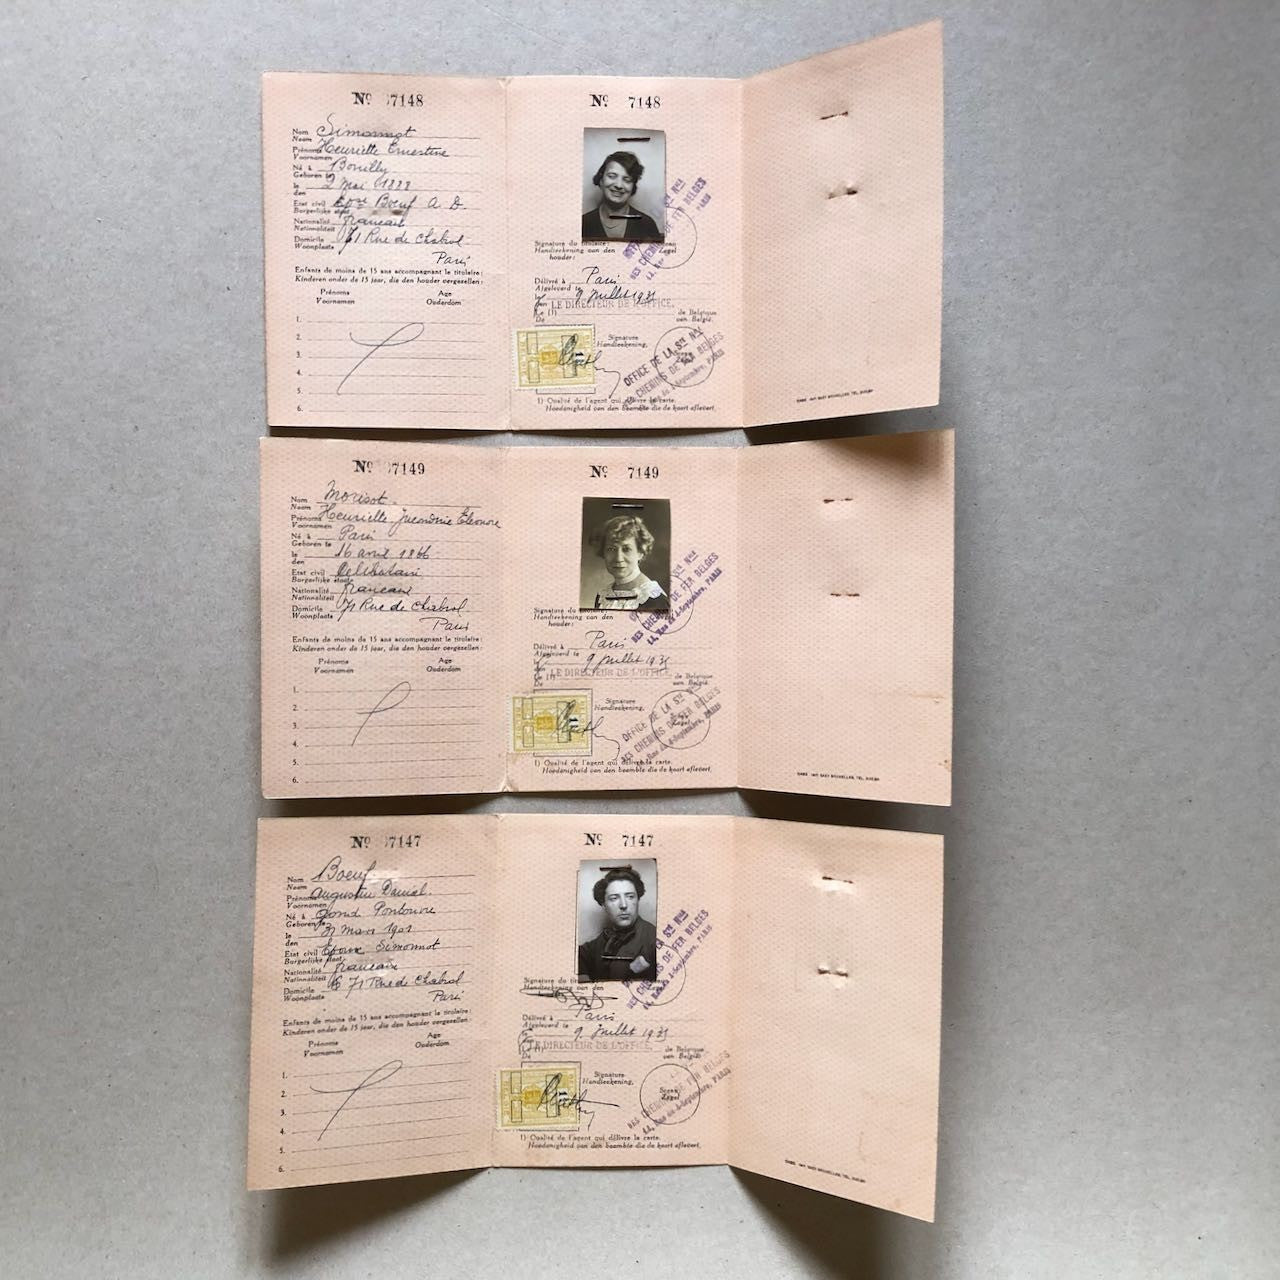 Nº 7148
Nom
Naam Simonnot
Prénoms Henriette Ernestine
Voornamen
Né à Bouilly
Geboren te
le 2 Mai 1888
den
Etat civil Epse Boeuf A. D.
Burgerlijke staat
Nationalité française
Nationaliteit
Domicile 71 Rue de Chabrol
Woonplaats Paris
Enfants de moins de 15 ans accompagnant le titulaire:
Kinderen onder de 15 jaar, die den houder vergezellen:
Prénoms Age
Voornamen Ouderdom
1.
2.
3.
4.
5.
6.
Nº 7148
Signature du titulaire:
Handteekening van den
houder:
Sceau
Zegel
DES CHEMINS DE FER BELGES
PARIS
Délivré à Paris
Afgeleverd te
9 Juillet 1935
LE DIRECTEUR DE L'OFFICE,
Le (1) de Belgique
De van België.
Signature
Handteekening,
Sceau
Zegel
OFFICE DE LA Sté Nle
DES CHEMINS DE FER BELGES
14, Rue du 4-Septembre, PARIS
1) Qualité de l'agent qui délivre la carte.
Hoedanigheid van den beambte die de kaart aflevert.
Nº 7149
Nom Morisot
Naam
Prénoms Henriette Eléonore
Voornamen
Né à Paris
Geboren te
le 16 avril 1866
den
Etat civil Célibataire
Burgerlijke staat
Nationalité française
Nationaliteit
Domicile 71 Rue de Chabrol
Woonplaats Paris
Enfants de moins de 15 ans accompagnant le titulaire:
Kinderen onder de 15 jaar, die den houder vergezellen:
Prénoms Age
Voornamen Ouderdom
1.
2.
3.
4.
5.
6.
Nº 7149
Signature du titulaire:
Handteekening van den
houder:
Sté Nle
DES CHEMINS DE FER BELGES
14, Rue du 4-Septembre, PARIS
Délivré à Paris
Afgeleverd te
9 Juillet 1935
LE DIRECTEUR DE L'OFFICE,
Le (1) de Belgique
De van België.
Signature
Handteekening,
Sceau
Zegel
OFFICE DE LA Sté Nle
DES CHEMINS DE FER BELGES
14, Rue du 4-Septembre, PARIS
1) Qualité de l'agent qui délivre la carte.
Hoedanigheid van den beambte die de kaart aflevert.
Nº 7147
Nom Boeuf
Naam
Prénoms Augustin Daniel
Voornamen
Né à Gond Pontouvre
Geboren te
le 31 Mars 1901
den
Etat civil Epoux Simonnot
Burgerlijke staat
Nationalité française
Nationaliteit
Domicile 71 Rue de Chabrol
Woonplaats Paris
Enfants de moins de 15 ans accompagnant le titulaire:
Kinderen onder de 15 jaar, die den houder vergezellen:
Prénoms Age
Voornamen Ouderdom
1.
2.
3.
4.
5.
6.
Nº 7147
Signature du titulaire:
Handteekening van den
LA Sté Nle
DES CHEMINS DE FER BELGES
14, Rue du 4-Septembre, PARIS
Délivré à Paris
Afgeleverd te
9 Juillet 1935
LE DIRECTEUR DE L'OFFICE,
de Belgique
De van België.
Signature
Handteekening,
Sceau
Zegel
DES CHEMINS DE FER BELGES
14, Rue du 4-Septembre, PARIS
1) Qualité de l'agent qui délivre la carte.
Hoedanigheid van den beambte die de kaart aflevert.